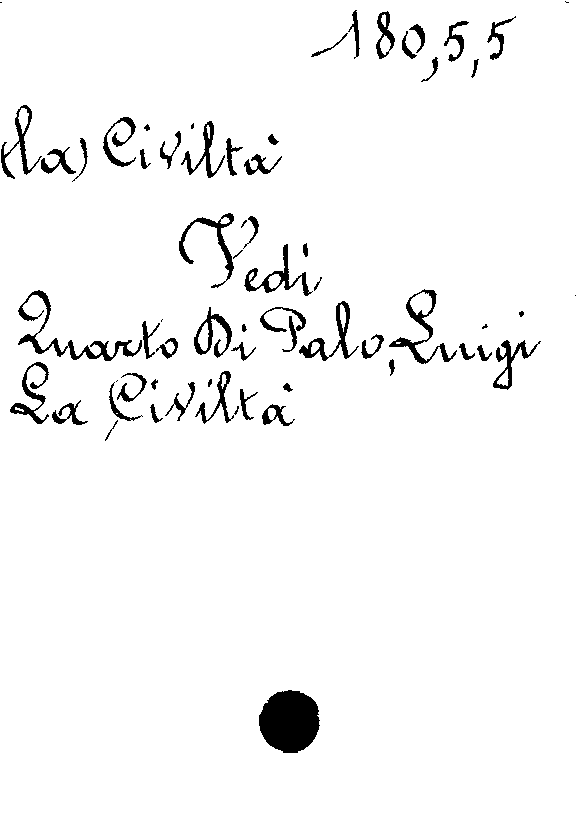 180,5,5
(la) Civiltà
Vedi
Quarto Di Palo, Luigi
La Civiltà